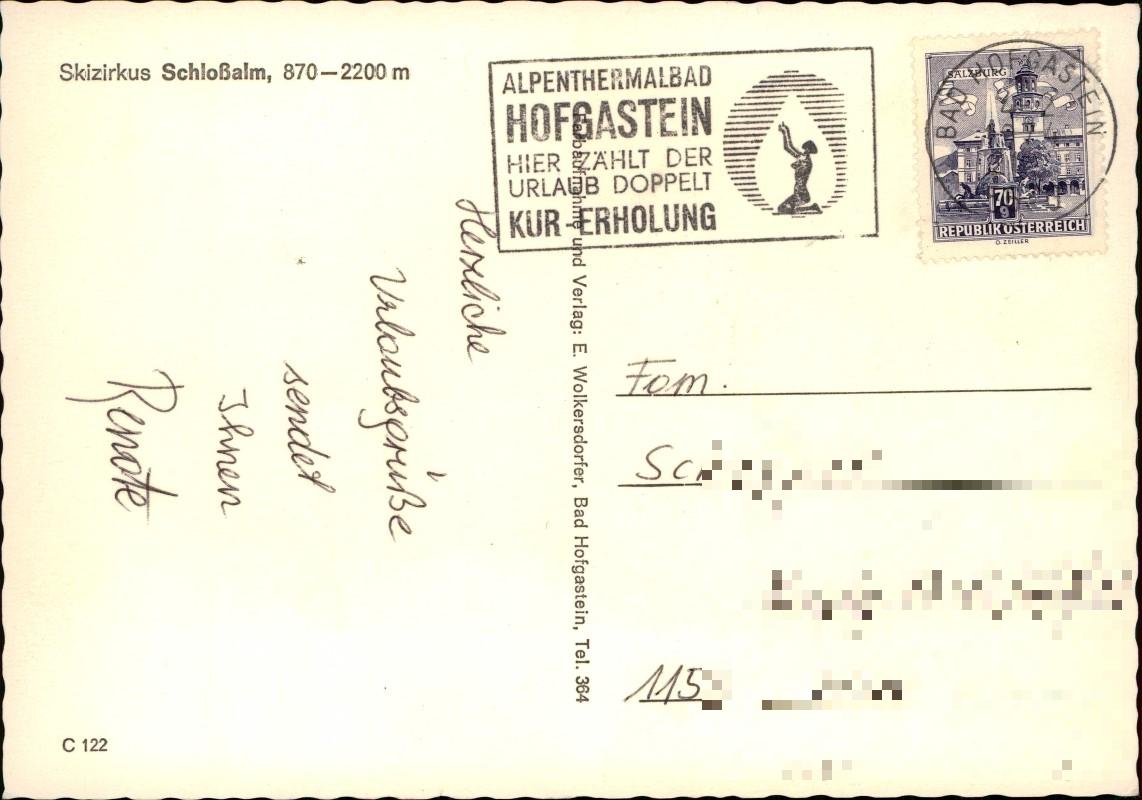 Skizirkus Schloßalm, 870—2200 m
ALPENTHERMALBAD
HOFGASTEIN
HIER ZÄHLT DER
URLAUB DOPPELT
KUR + ERHOLUNG
BAD HOFGASTEIN
SALZBURG
70
g
REPUBLIK ÖSTERREICH
O. ZEILLER
Herzliche
Urlaubsgrüße
sendet
Ihnen
Renate
Farbaufnahme und Verlag: E. Wolkersdorfer, Bad Hofgastein, Tel. 364
Fam.
115
C 122